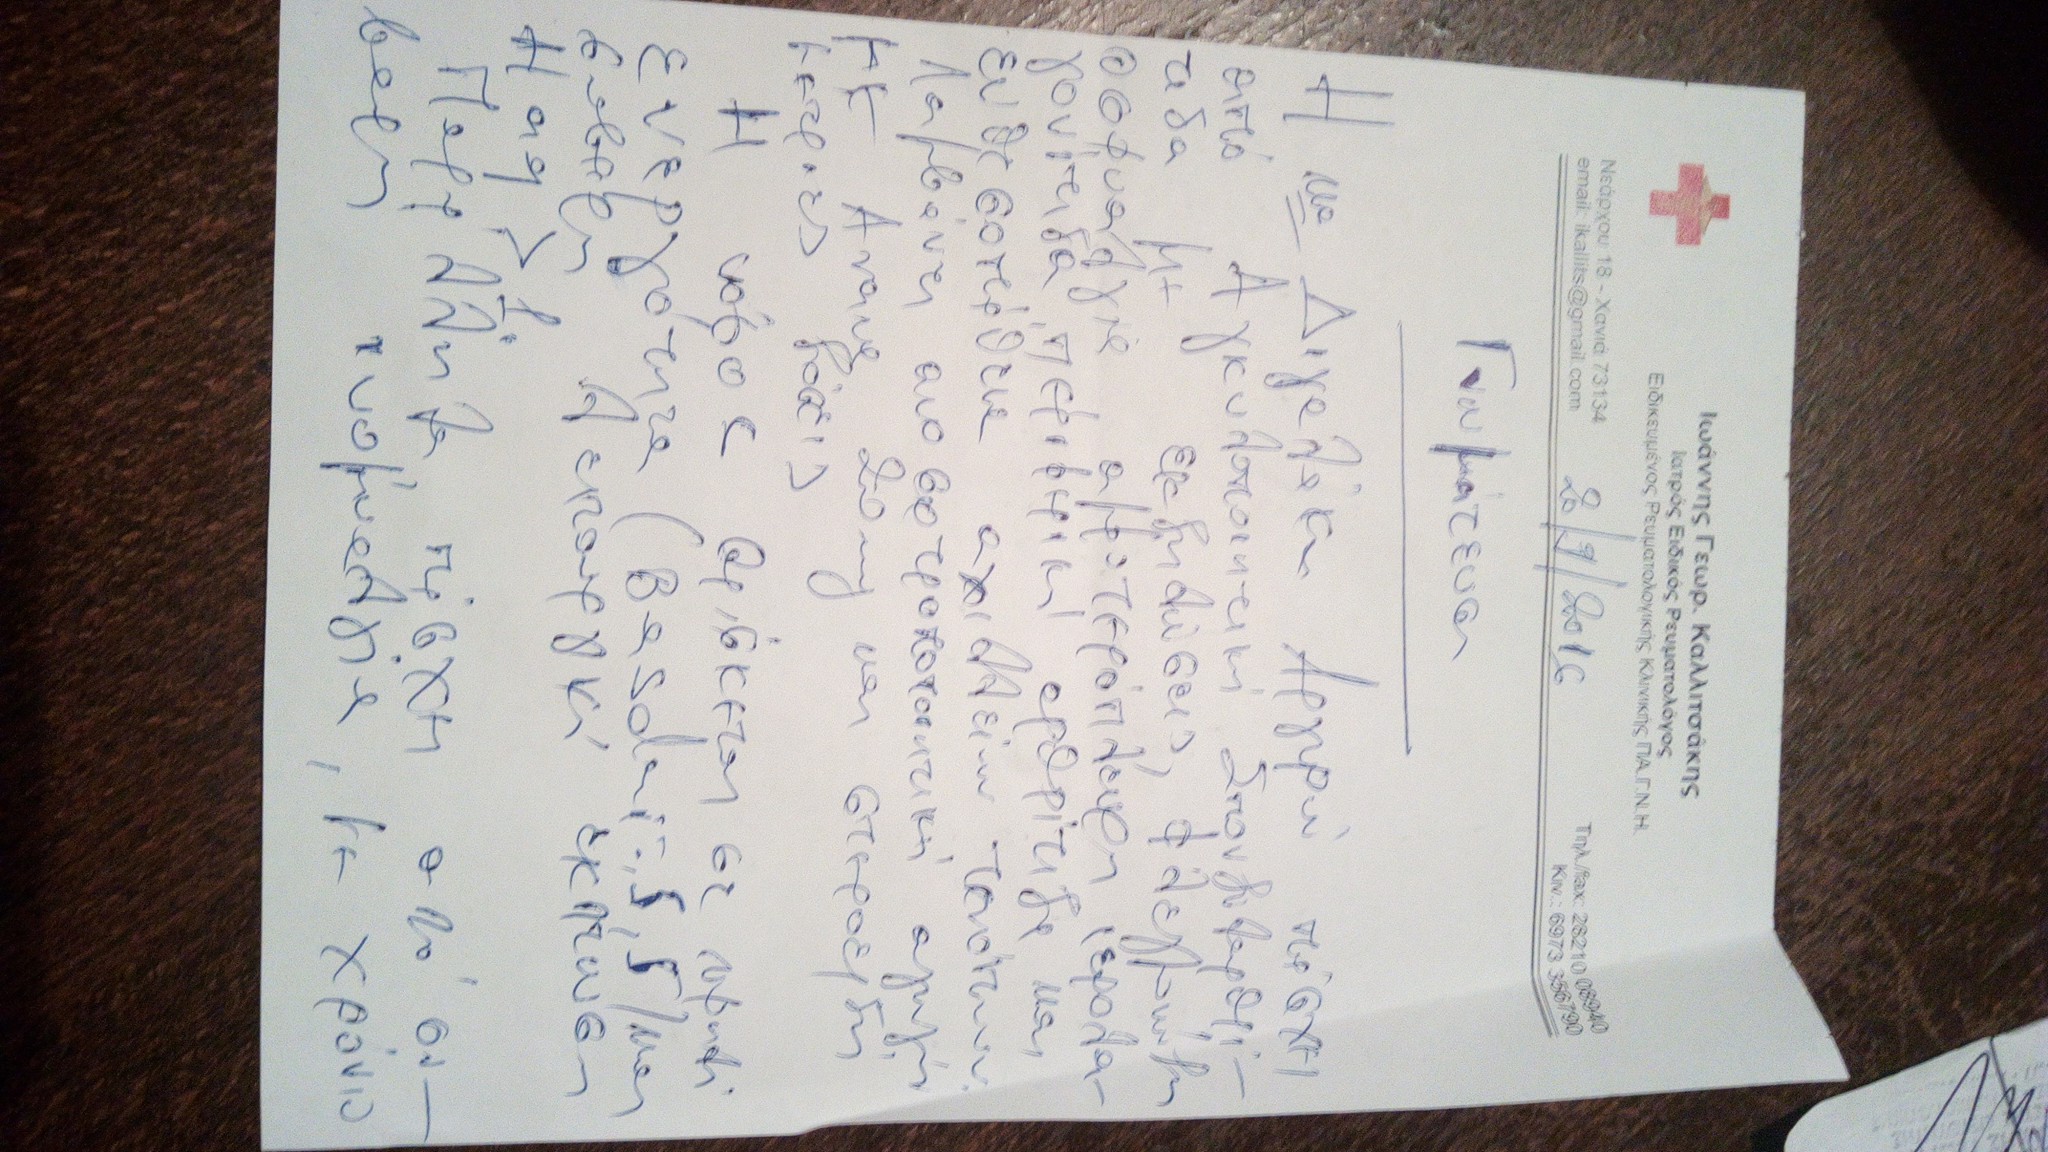 Ιωάννης Γεωρ. Καλλιτσάκης
Ιατρός Ειδικός Ρευματολόγος
Ειδικευμένος Ρευματολογικής Κλινικής ΠΑ.Γ.Ν.Η.
Νεάρχου 18 - Χανιά 73134
email: ikallits@gmail.com
20/9/2016
Τηλ./fax: 28210 08940
Κιν.: 6973 356790
Γνωμάτευση
Η κα Διγαλάκη Αργυρώ πάσχει
από Αγκυλοποιητική Σπονδυλαρθρί-
τιδα με εκδηλώσεις φλεγμονώδη
οσφυαλγία αμφοτερόπλευρη ιερολα-
γονίτιδα, περιφερική αρθρίτιδα και
ενθεσοπάθεια αχιλλείων τενόντων.
Λαμβάνει ανοσοτροποποιητική αγωγή
με και στεροειδή
κατά βάσιν
Η νόσος βρίσκεται σε υψηλή
ενεργότητα (Basdai: 5,5) και
σοβαρή λειτουργική έκπτωση
Παράλληλα πάσχει από σύ-
ινομυαλγία, με χρόνιο